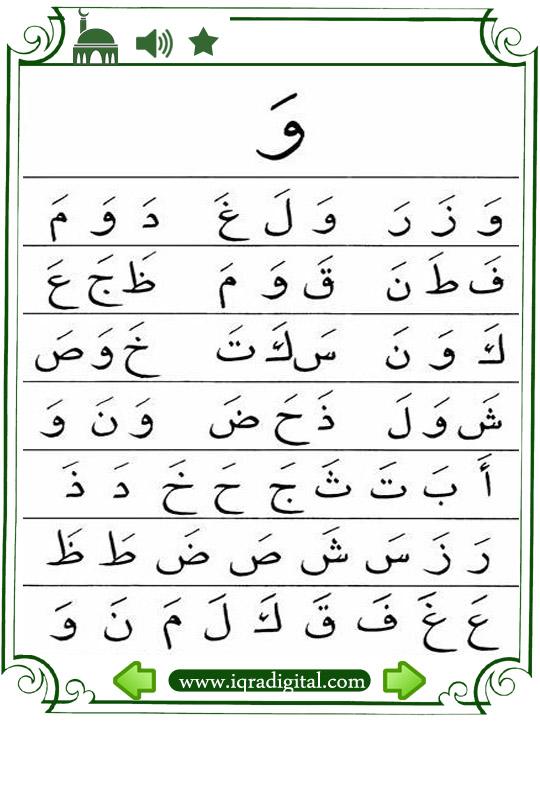 وَ
وَ زَ رَ وَ لَ غَ دَ وَ مَ
فَ طَ نَ قَ وَ مَ ظَ جَ عَ
كَ وَ نَ سَ كَ تَ خَ وَ صَ
شَ وَ لَ ذَ حَ ضَ وَ نَ وَ
أَ بَ تَ ثَ جَ حَ خَ دَ ذَ
رَ زَ سَ شَ صَ ضَ طَ ظَ
عَ غَ فَ قَ كَ لَ مَ نَ وَ
www.iqradigital.com